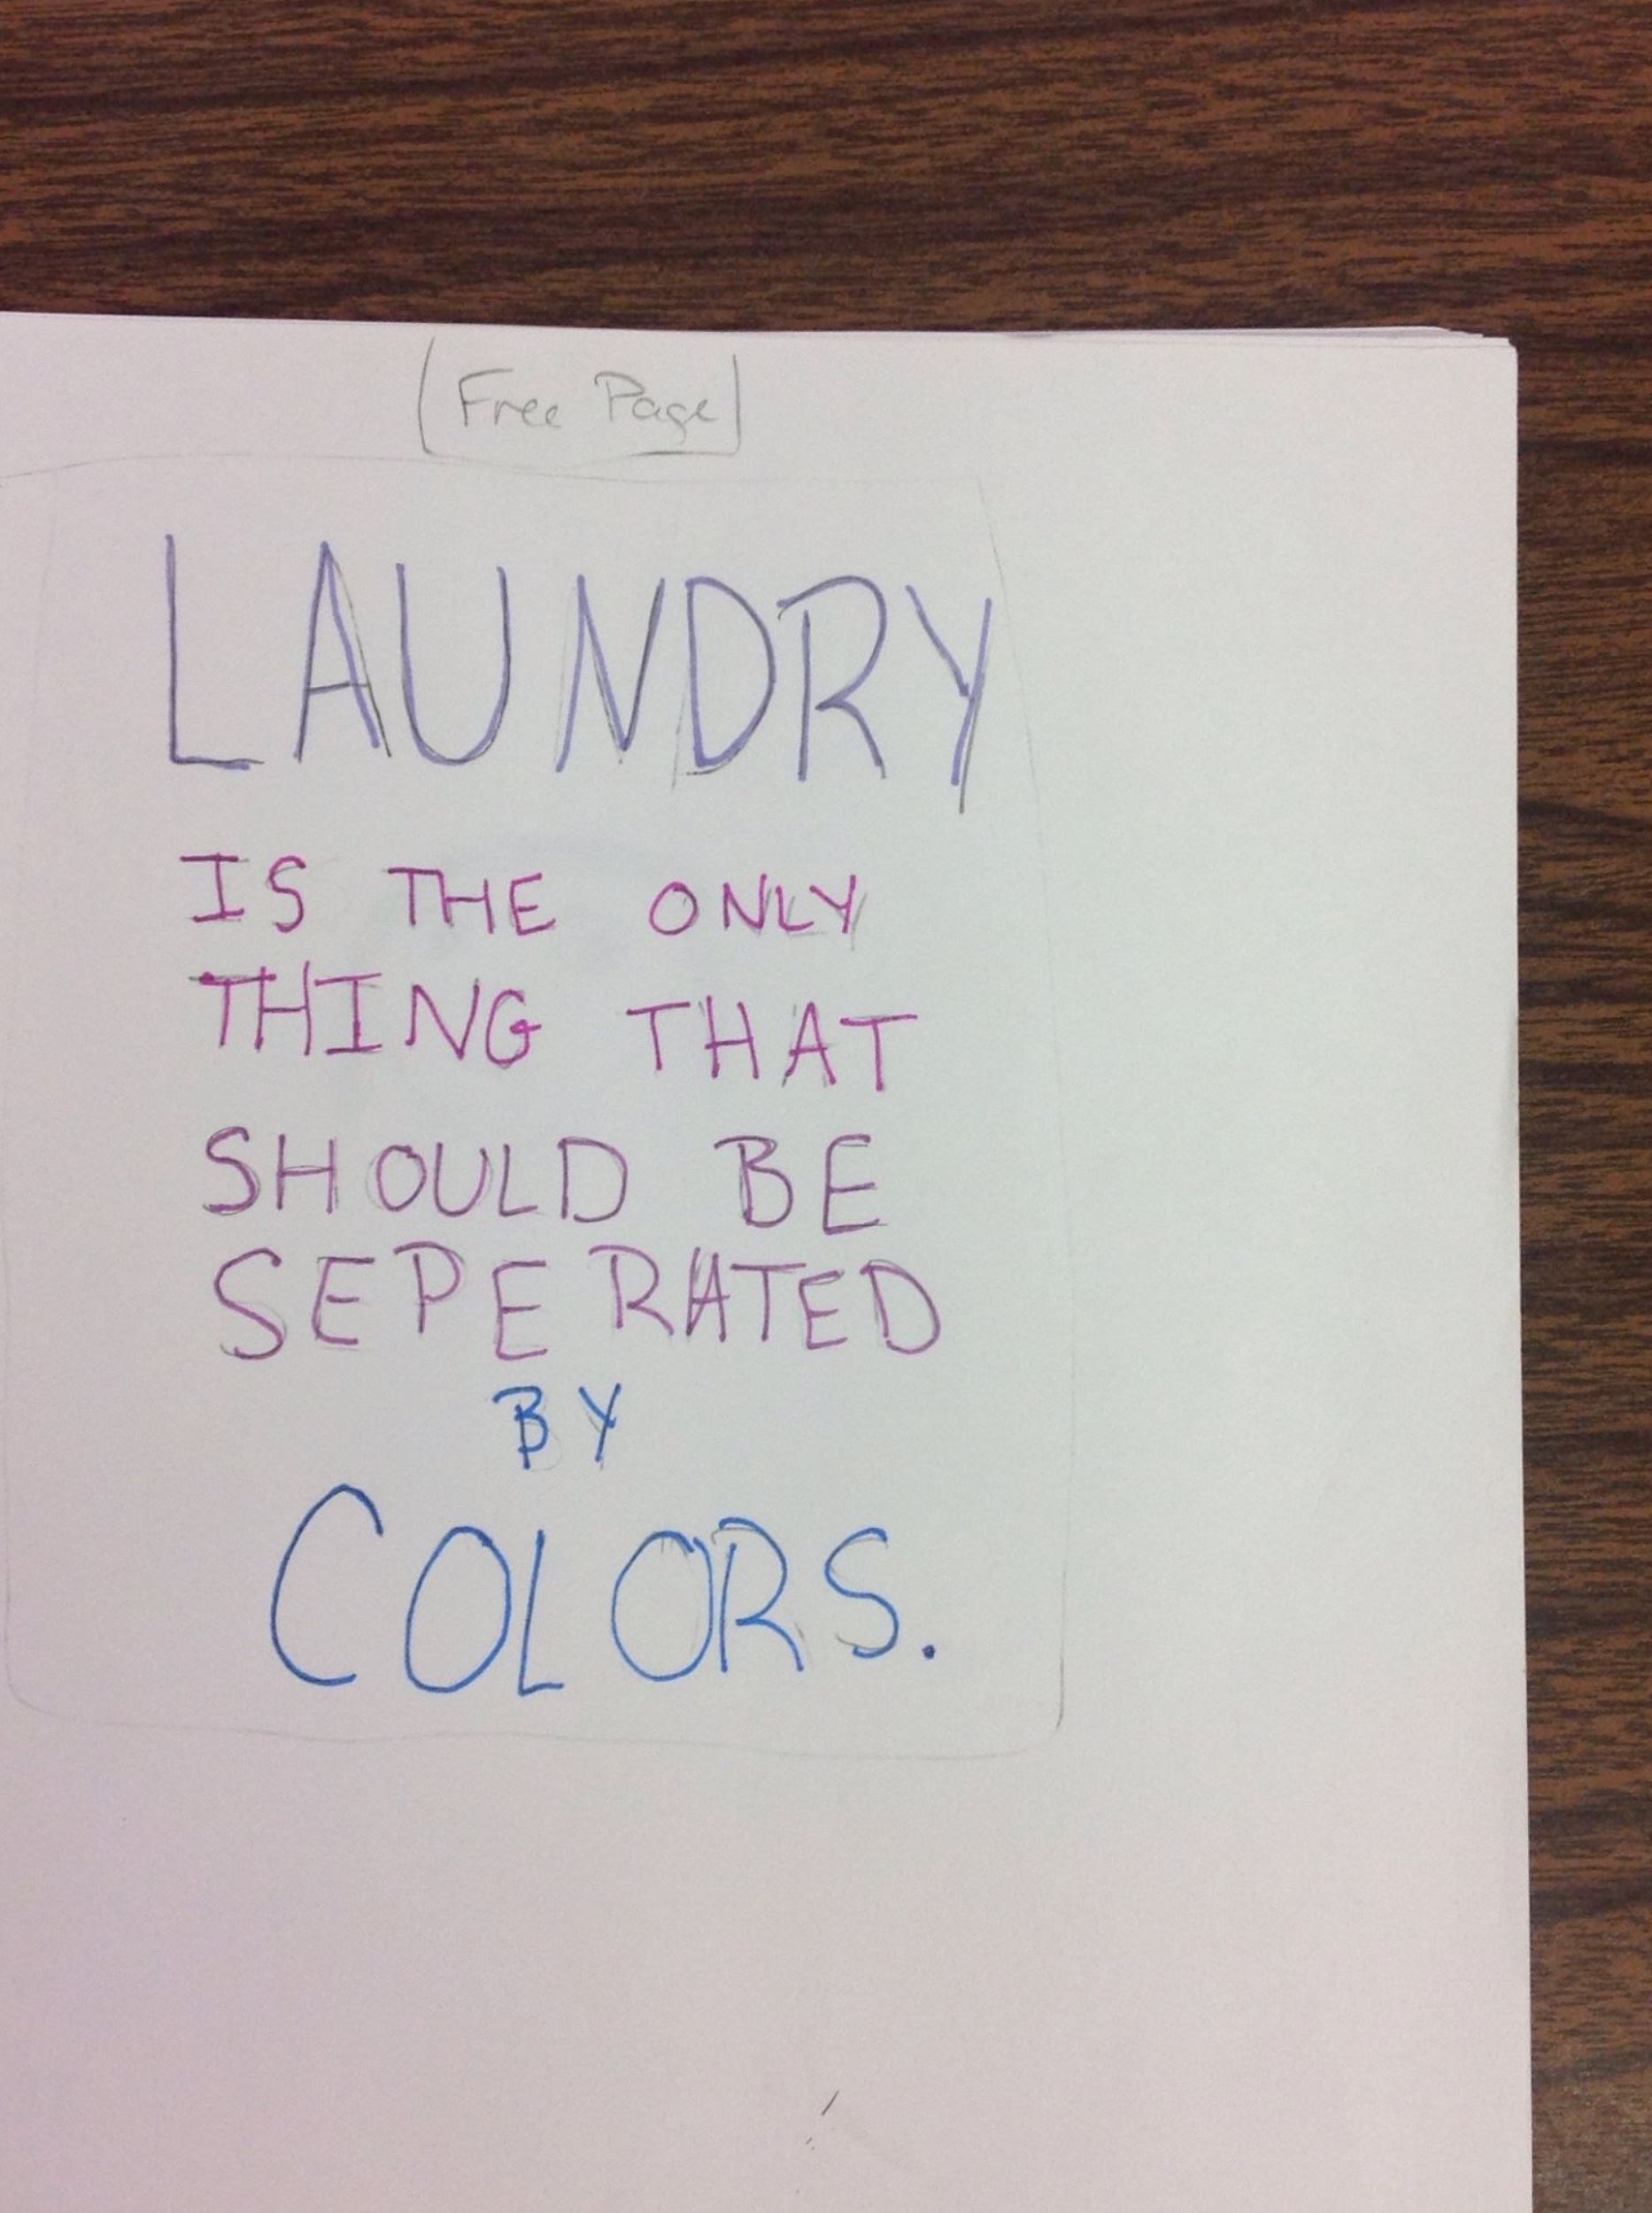 Free Page
LAUNDRY
IS THE ONLY
THING THAT
SHOULD BE
SEPERATED
BY
COLORS.